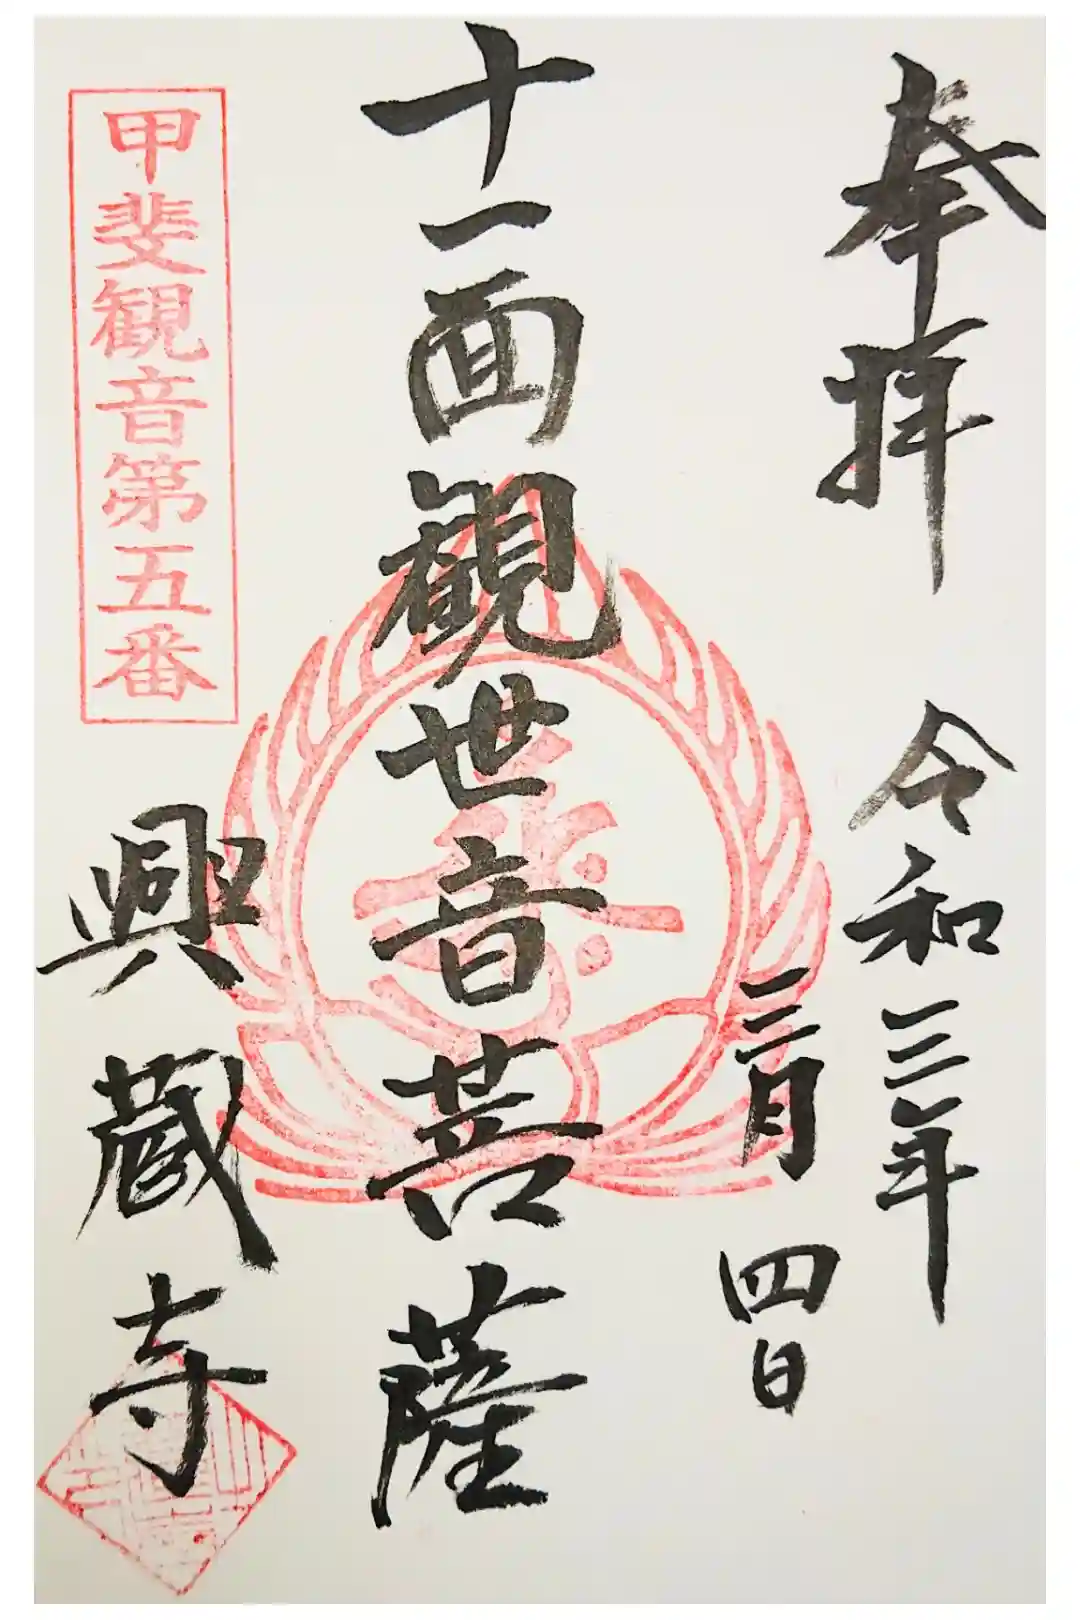 奉拝 令和三年
三月 四日
十一面観世音菩薩
甲斐観音第五番
興蔵寺